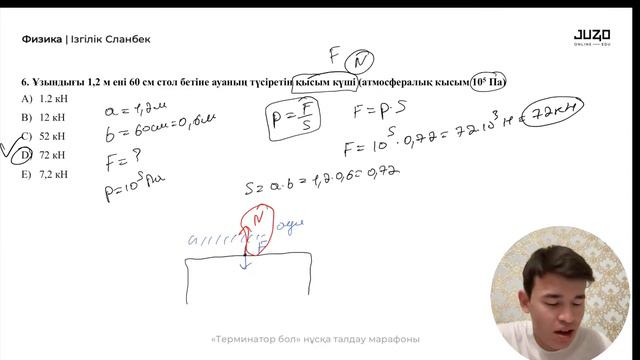 Физика | Ізгілік Сланбек
JUZ40
ONLINE — EDU
F N
6. Ұзындығы 1,2 м ені 60 см стол бетіне ауаның түсіретін қысым күші (атмосфералық қысым 10⁵ Па)
A) 1.2 кН
B) 12 кН
C) 52 кН
D) 72 кН
E) 7,2 кН
a = 1,2м
b = 60см = 0,6м
F = ?
P = 10⁵ Па
P = F/S
F = P · S
F = 10⁵ · 0,72 = 72 10³ Н = 72кН
S = a · b = 1,2 · 0,6 = 0,72
N
F
ауа
«Терминатор бол» нұсқа талдау марафоны